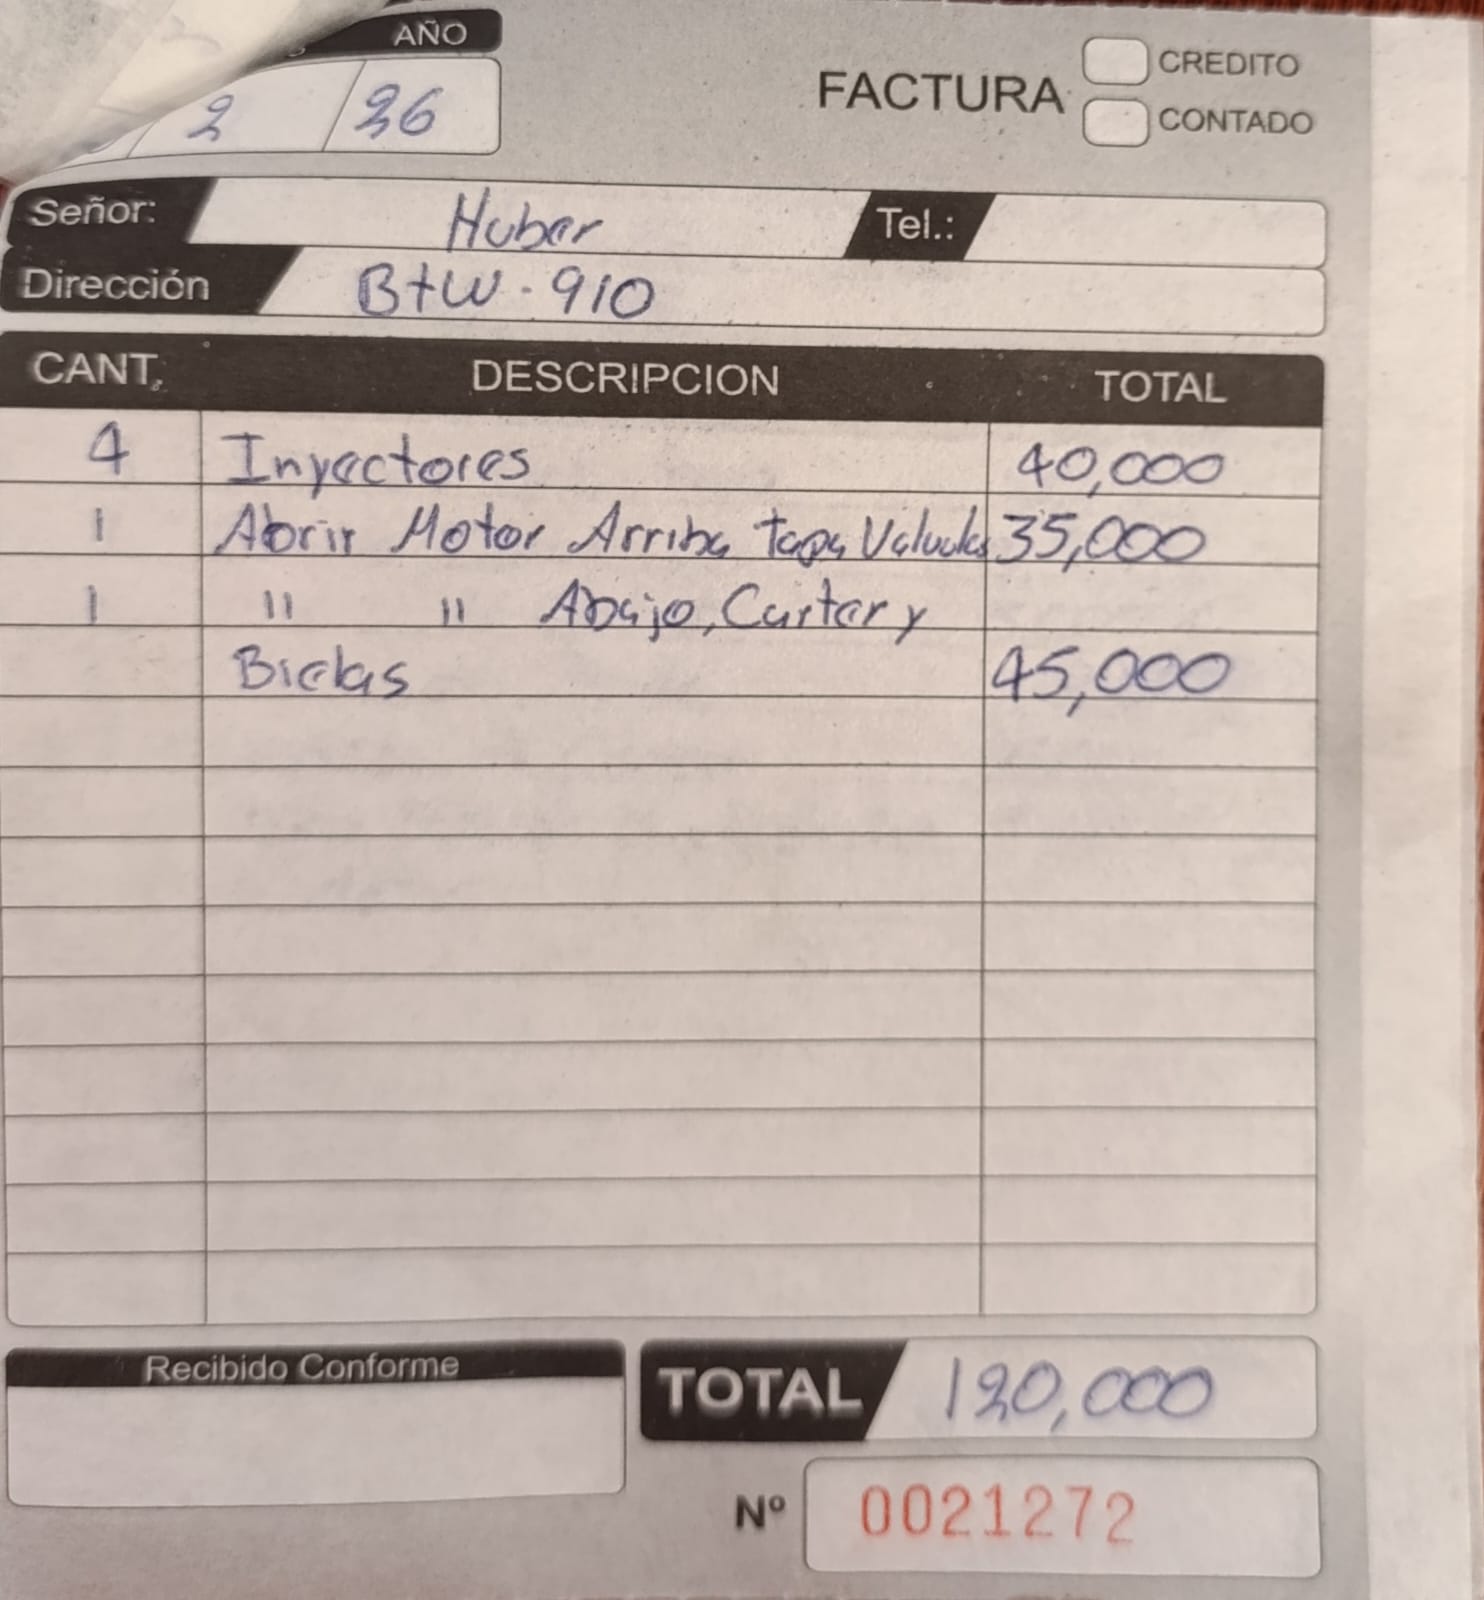 AÑO
2 26
FACTURA
CREDITO
CONTADO
Señor: Huber Tel.:
Dirección BtW-910
CANT. DESCRIPCION TOTAL
4 Inyectores 40,000
1 Abrir Motor Arriba Tapa Valvulas 35,000
1 " " Abajo, Carter y
Bielas 45,000
Recibido Conforme
TOTAL 120,000
Nº 0021272